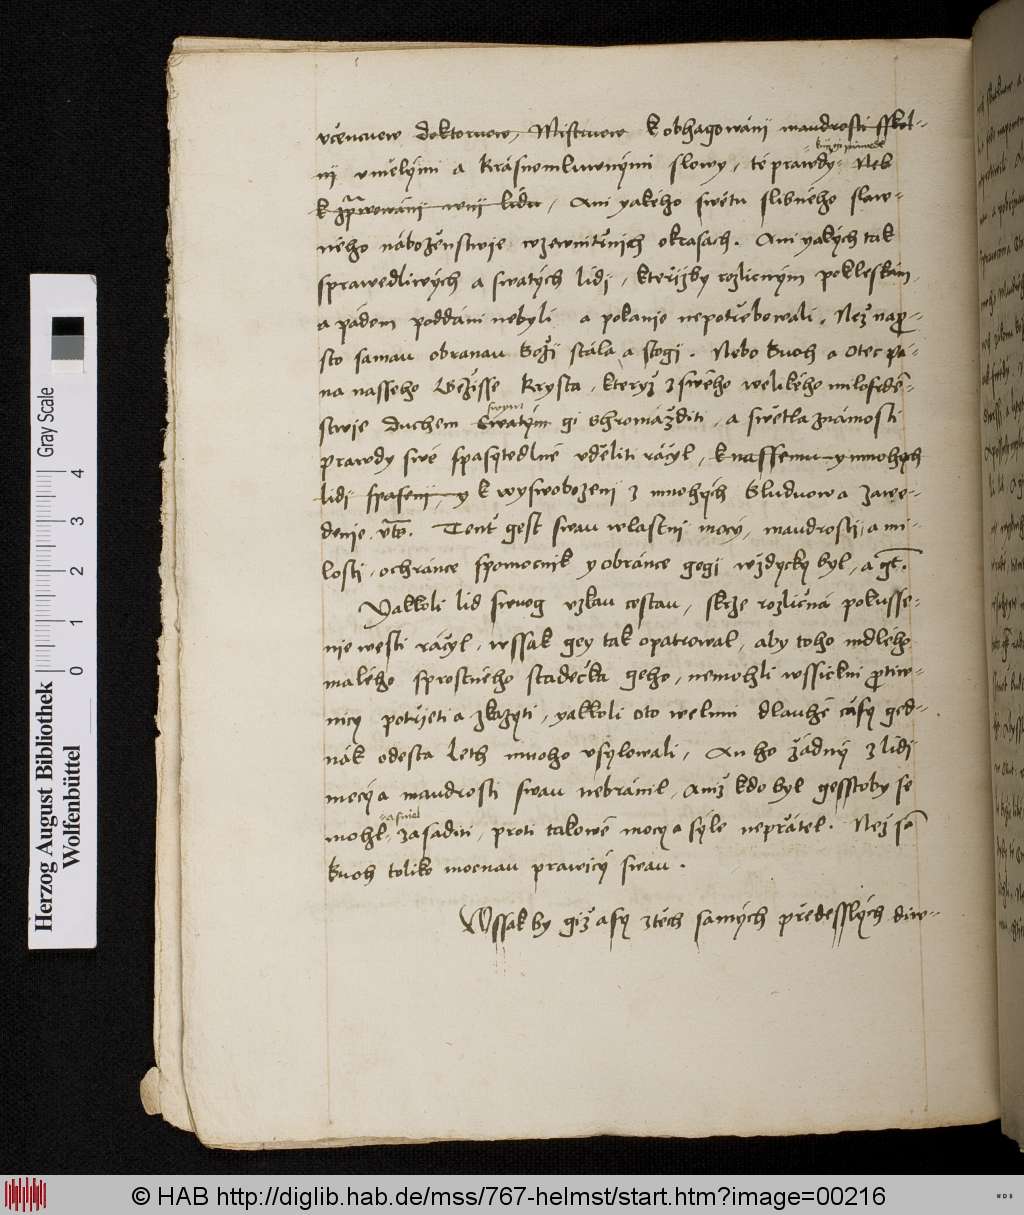 včencuow doktoruow, Mistruow k obhagowánij maudrosti sskol-
nij vmělými a krásnomluwnými slowy, té prawdy. Neb
k zprawowánij wnij lidu, Ani yakého swětu slibného slaw-
ného náboženstwie wzewnitřnich okrasach. Ani yakých tak
sprawedliwých a swatých lidj, kteřižby rozlicným pokleskám
a pádom poddáni nebyli a pokanie nepotřebowali. Než
sto samau obranau Boži stála a stogi. Nebo Buoh a otec pá-
na nasseho Gežisse Krysta, kteryž z swého welikého milosrden-
stwie duchem swatým gi shromážditi, a swětla známosti
prawdy swé spasytedlné vděliti ráčyl, k nassemu y mnohych
lidj spasenij, y k wyswobozenj z mnohých bluduow a zawe-
denie. Tenť gest swau wlastni mocy, maudrosti, a mi-
losti, ochránce spomocnik y obránce gegi wždycky byl, a gt.
Yakkoli lid swuog vzkau cestau, skrze rozličná pokusse-
nie westi ráčyl, wssak gey tak opatrowal, aby toho mdlého
malého sprostného stadéčka geho, nemohli wssickni protiw-
nicy potřieti a zkazyti, yakkoli oto welmi dlauhé časy ged-
nák odesta leth mnoho vsylowali, An ho žádný z lidj
mocý a maudrosti swau nebránil, Aniž kdo byl gesstoby se
mohl a směl zasaditi, proti takowé mocy a syle nepřátel. Než
Buoh toliko mocnau prawicý swau.
Wssak by giž asy z těch samých předesslých diw-
Herzog August Bibliothek
Wolfenbüttel
Gray Scale
0 1 2 3 4
© HAB http://diglib.hab.de/mss/767-helmst/start.htm?image=00216